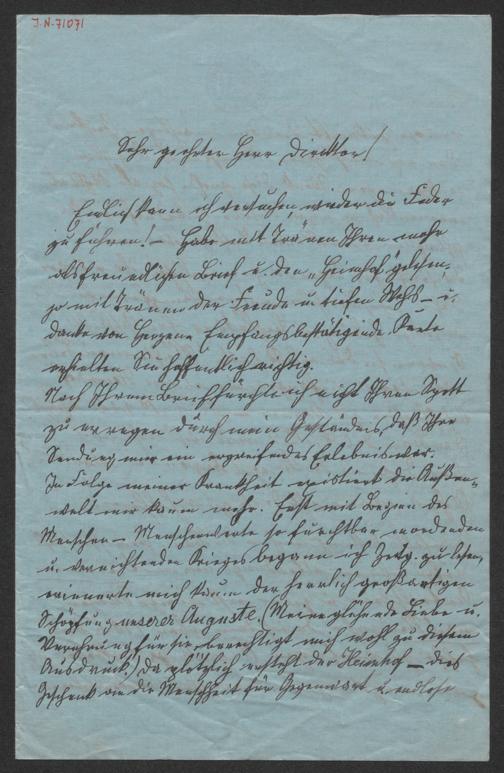 J.N. 71071
Sehr geehrter Herr Direktor!
Endlich kann ich versuchen, wieder die Feder
zu führen! – Habe mit Tränen Ihren mehr
als freundlichen Brief u. den „Heimhof" gelesen,
ja mit Tränen der Freude u. tiefen Wehs – u.
danke von Herzen. Empfangsbestätigende Karte
erhielten Sie hoffentlich richtig.
Nach Ihrem Brief fürchte ich nicht Ihren Spott
zu erregen durch mein Geständnis, daß Ihre
Sendung mir ein ergreifendes Erlebnis war.
In Folge meiner Krankheit existiert die Außen-
welt mir kaum mehr. Erst mit Beginn des
Menschen – Menschenwerte so furchtbar mordenden
u. vernichtenden Krieges begann ich Zeitg. zu lesen,
erinnerte mich kaum der herrlich großartigen
Schöpfung unserer Auguste. (Meine glühende Liebe u.
Verehrung für sie, berechtigt mich wohl zu diesem
Ausdruck.) Da plötzlich ersteht der Heimhof – dies
Geschenk an die Menschheit für Gegenwart u. endlose